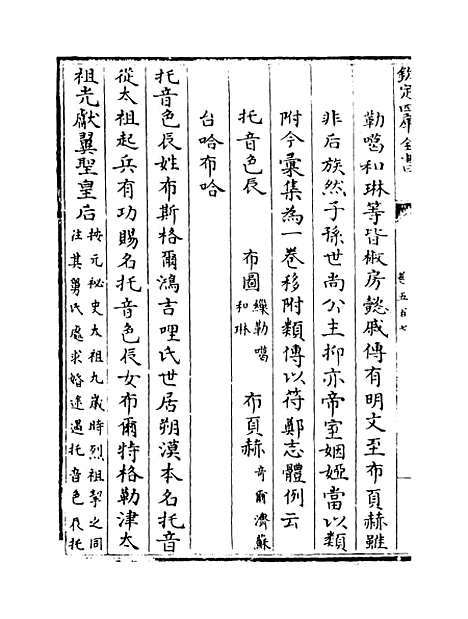 欽定四庫全書
卷五百七
勒噶和琳等皆椒房懿戚傳有明文至布頁赫雖
非后族然子孫世尚公主抑亦帝室姻婭當以類
附今彙集為一卷移附類傳以符鄭志體例云
托音色辰 布圖 繅勒噶和琳 布頁赫 奇爾濟蘇
台哈布哈
托音色辰姓布斯格爾鴻吉哩氏世居朔漠本名托音
從太祖起兵有功賜名托音色辰女布爾特格勒津太
祖光獻翼聖皇后 按元秘史太祖九歲時烈祖挈之同
往其舅氏處求婚途遇托音色辰托